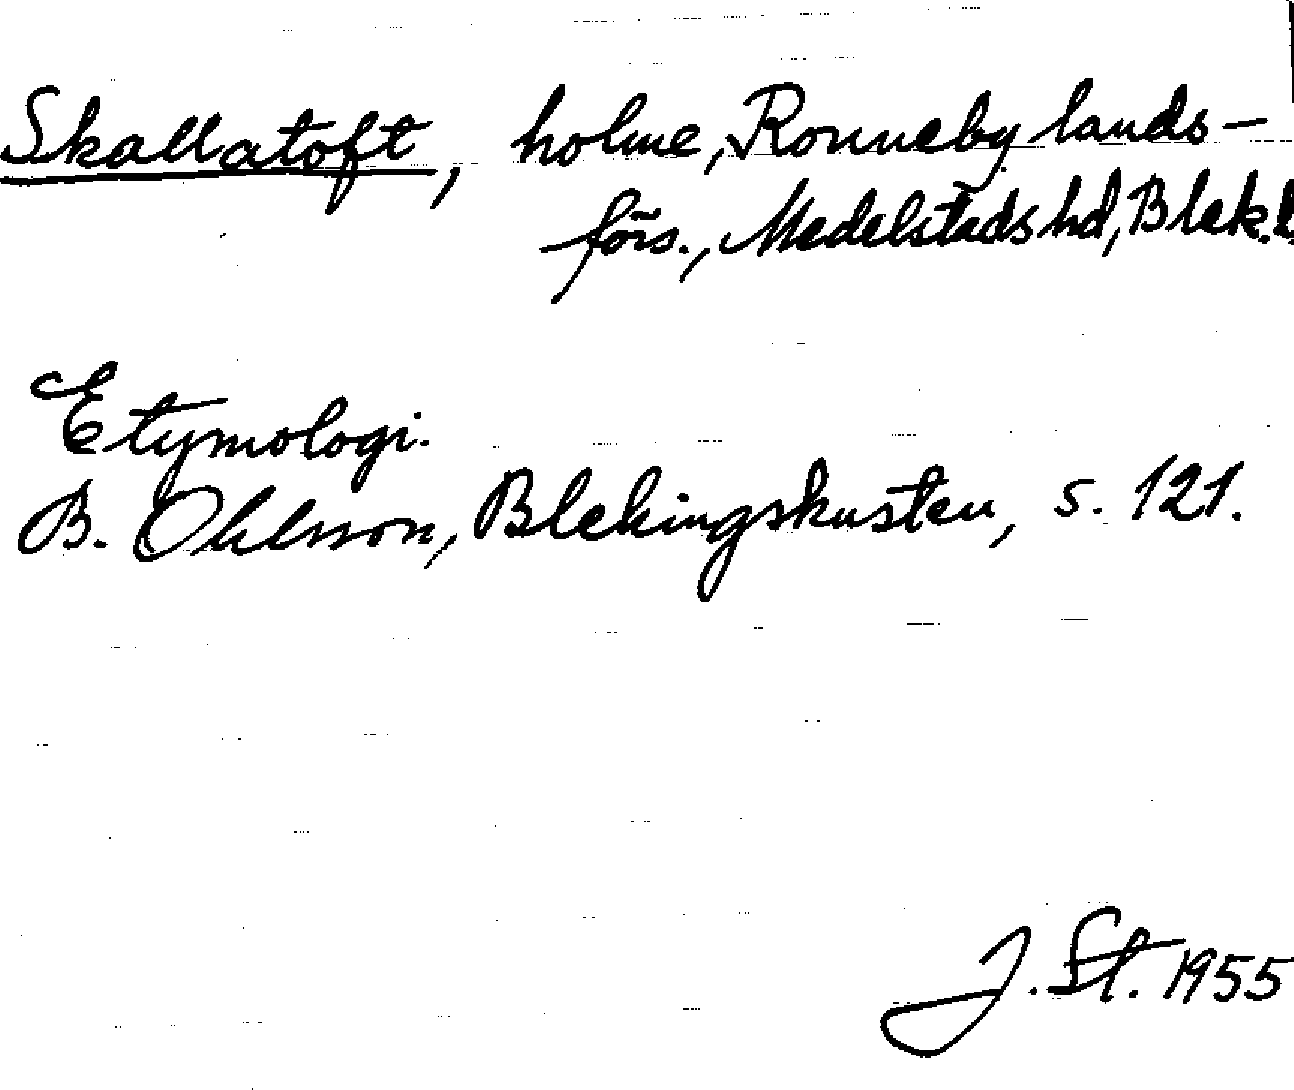 Skallatoft, holme, Ronneby lands-
förs., Medelstads hd, Blek. l.
Etymologi.
B. Ohlsson, Blekingskusten, s. 121.
J. St. 1955